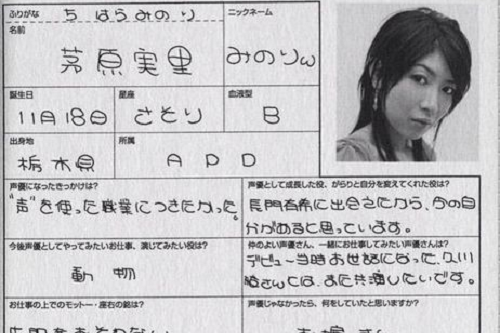 ふりがな ちはらみのり
ニックネーム
名前 茅原実里
みのりん
誕生日 11月18日
星座 さそり
血液型 B
出身地 栃木県
所属 APD
声優になったきっかけは?
"声"を使った職業につきたかった。
声優として成長した役、がらりと自分を変えてくれた役は?
長門有希に出会えたから、今の自
分があると思っています。
今後声優としてやってみたいお仕事、演じてみたい役は?
動物
仲のよい声優さん、一緒にお仕事してみたい声優さんは?
デビュー当時お世話になった、久川
綾さんとは、また共演したいです。
お仕事の上でのモットー・座右の銘は?
声優じゃなかったら、何をしていたと思いますか?